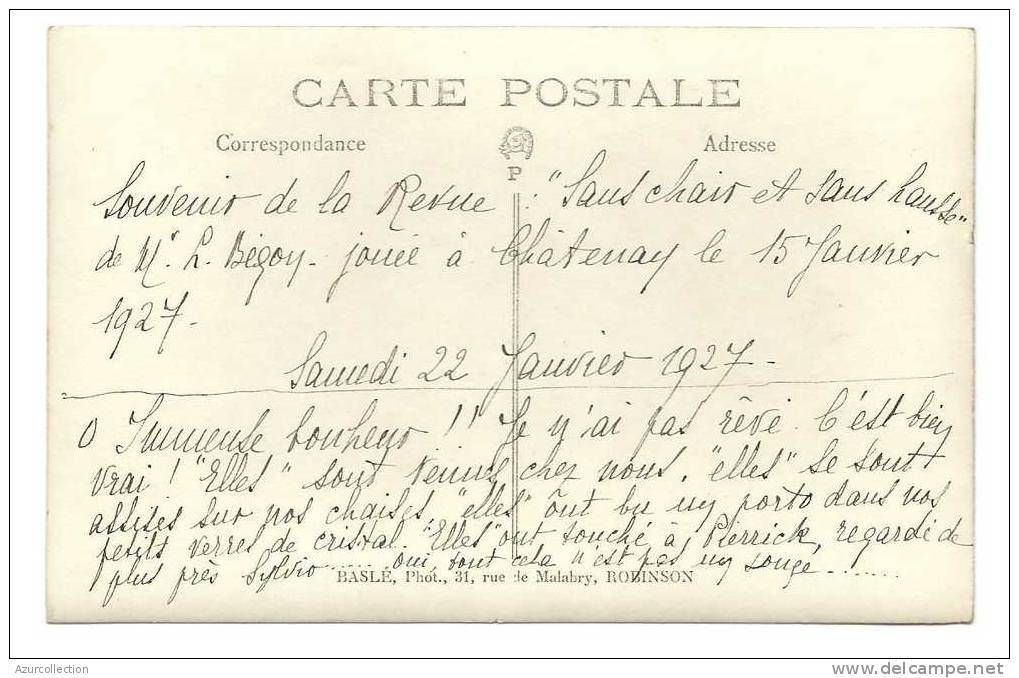 CARTE POSTALE
Correspondance
Adresse
P
Souvenir de la Revue : "Sans chair et sans hausse"
de Mr L. Bégoy - jouée à Châtenay le 15 Janvier
1927 -
Samedi 22 Janvier 1927 -
O Immense bonheur !! Je n'ai pas rêvé. C'est bien
vrai ! "Elles" sont venues chez nous, "elles" se sont
assises sur nos chaises, "elles" ont bu un porto dans nos
petits verres de cristal. "Elles" ont touché à Pierrick, regardé de
plus près Sylvio ..... oui, tout cela n'est pas un songe .......
BASLÉ, Phot., 31, rue de Malabry, ROBINSON
Azurcollection
www.delcampe.net